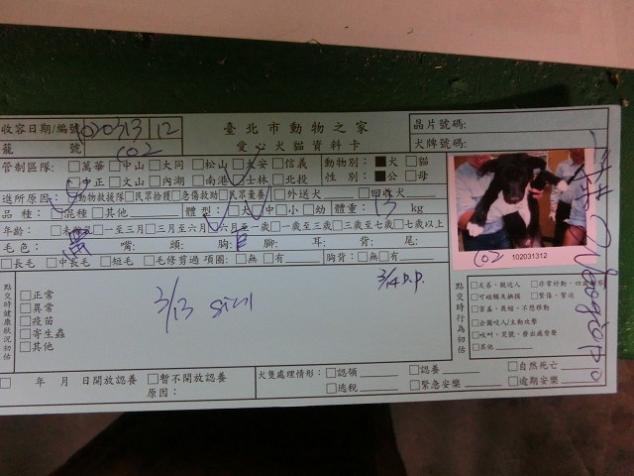 收容日期/編號 1020313 12 臺北市動物之家 晶片號碼:
籠號 C02 愛心犬貓資料卡 犬牌號碼:
管制區隊: □萬華□中山□大同 □松山□大安□信義 動物別: ■犬 □貓
□中正□文山□內湖 □南港□士林□北投 性別: ■公 □母
進所原因: □動物救援隊□民眾拾獲□急傷救助□民眾棄養 □外送犬 □回收犬
品種: □混種□其他 體型: □大□中□小□幼 體重: 13 kg
年齡: □一至三月□三月至六月□六月至一歲□一歲至三歲□三歲至七歲□七歲以上
毛色: 黑 嘴: 頭: 胸: 腳: 耳: 背: 尾:
□長毛 □中長毛 □短毛 □毛修剪過 項圈: □無 □有 胸背: □無 □有
點交時健康狀況初估
□正常
□異常
□疫苗
□寄生蟲
□其他
3/13
3/14 P.P.
C02
102031312
點交時行為初估
□友善、親近人
□可碰觸及撫摸 □緊張、緊迫
□害羞、畏縮、不想移動
□企圖咬人/主動攻擊
□吠叫、哭號、發出威脅聲
□其他
□ 年 月 日開放認養 □暫不開放認養
原因:
犬隻處理情形: □認領 □認養 □自然死亡
□逃脫 □緊急安樂 □逾期安樂